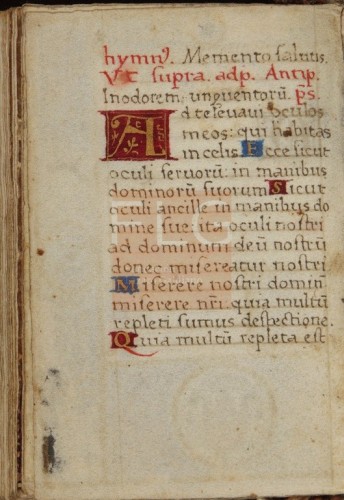 hymnꝰ. Memento salutis.
Ut supra. adp. Antip.
In odorem, unguentorū. p̄s.
Ad te levavi oculos
meos: qui habitas
in celis. Ecce sicut
oculi servorū: in manibus
dominorū suorum Sicut
oculi ancille in manibus do
mine sue: ita oculi nostri
ad dominum deū nostrū
donec misereatur nostri
Miserere nostri domin
miserere nr̄i. quia multū
repleti sumus despectione.
Quia multū repleta est